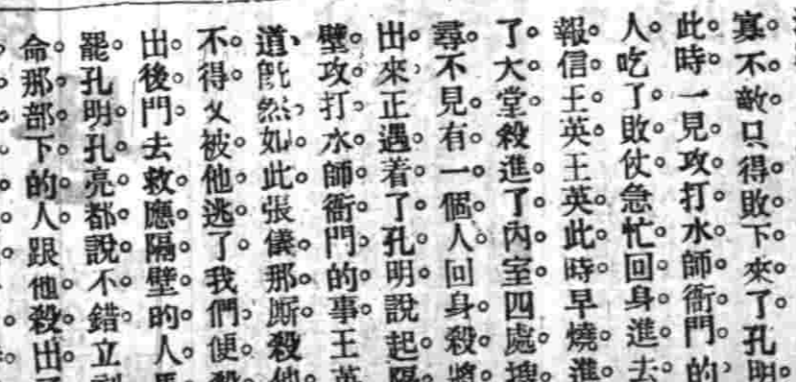 寡不敵只得敗下來了孔明
此時一見攻打水師衙門的
人吃了敗仗急忙回身進去
報信王英王英此時早燒進
了大堂殺進了內室四處搜
尋不見有一個人回身殺將
出來正遇着了孔明說起隔
壁攻打水師衙門的事王英
道既然如此張儀那厮殺他
不得又被他逃了我們便殺
出後門去救應隔壁的人馬
罷孔明孔亮都說不錯立刻
命那部下的人跟他殺出